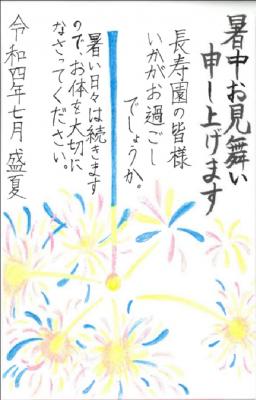 暑中お見舞い
申し上げます
長寿園の皆様
いかがお過ごし
でしょうか。
暑い日々は続きます
ので、お体を大切に
なさってください。
令和四年七月 盛夏